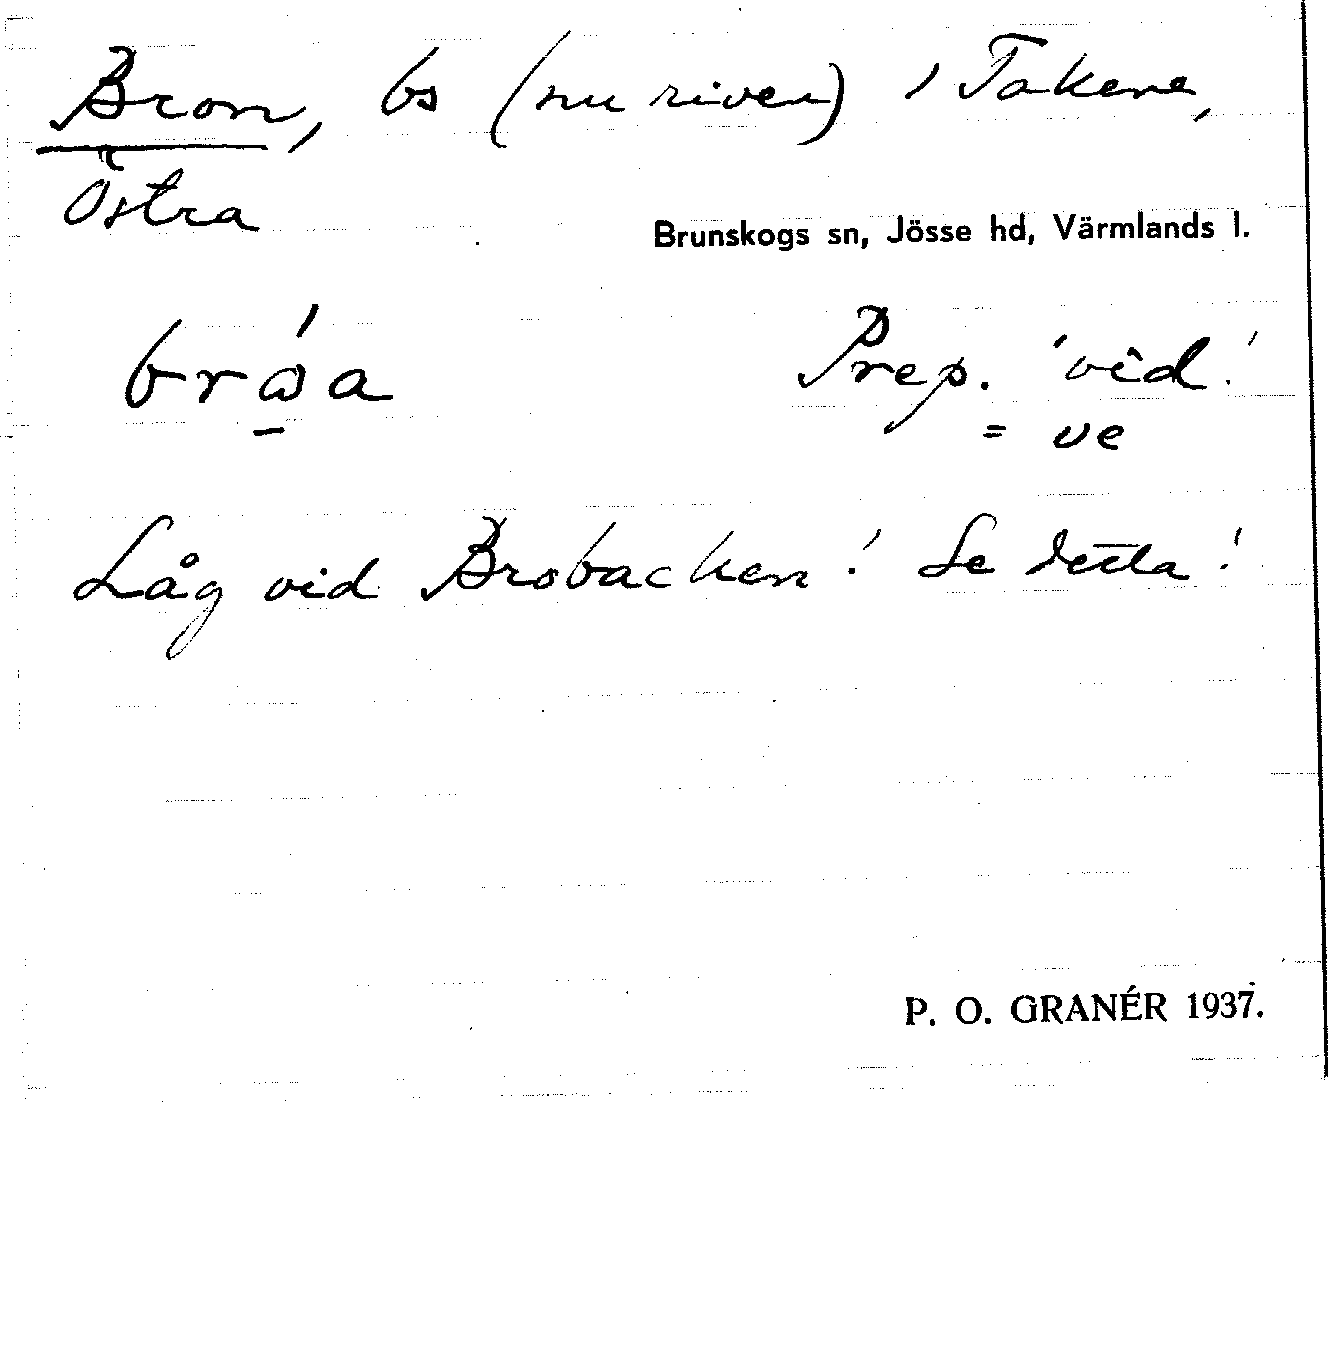 Bron, bs (nu riven) i Takene,
Östra
Brunskogs sn, Jösse hd, Värmlands l.
Prep. 'vid!'
= ve
Låg vid Brobacken! Se detta!
P. O. GRANÉR 1937.